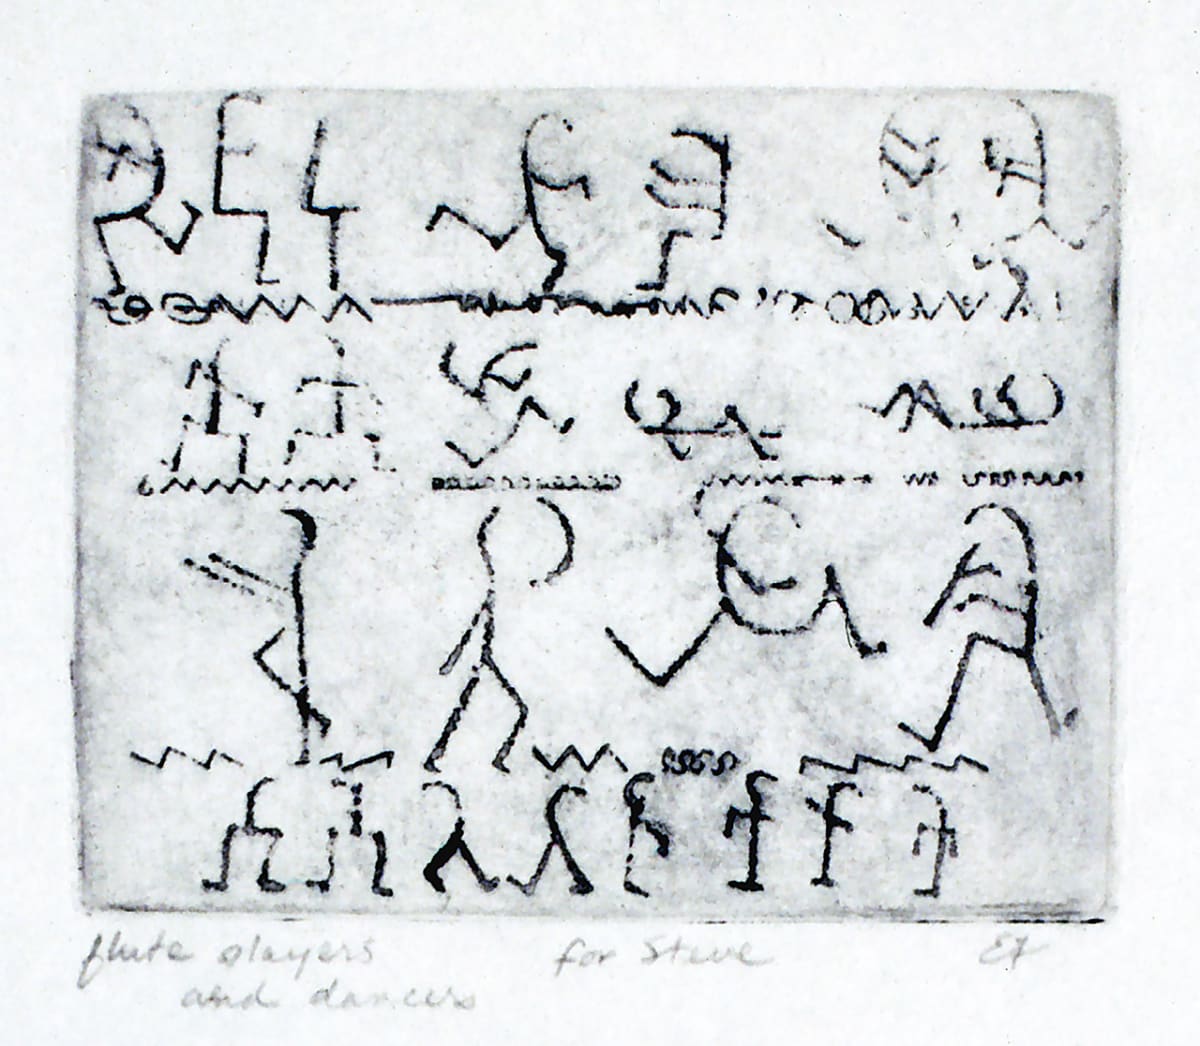 flute players for Steve EF
and dancers